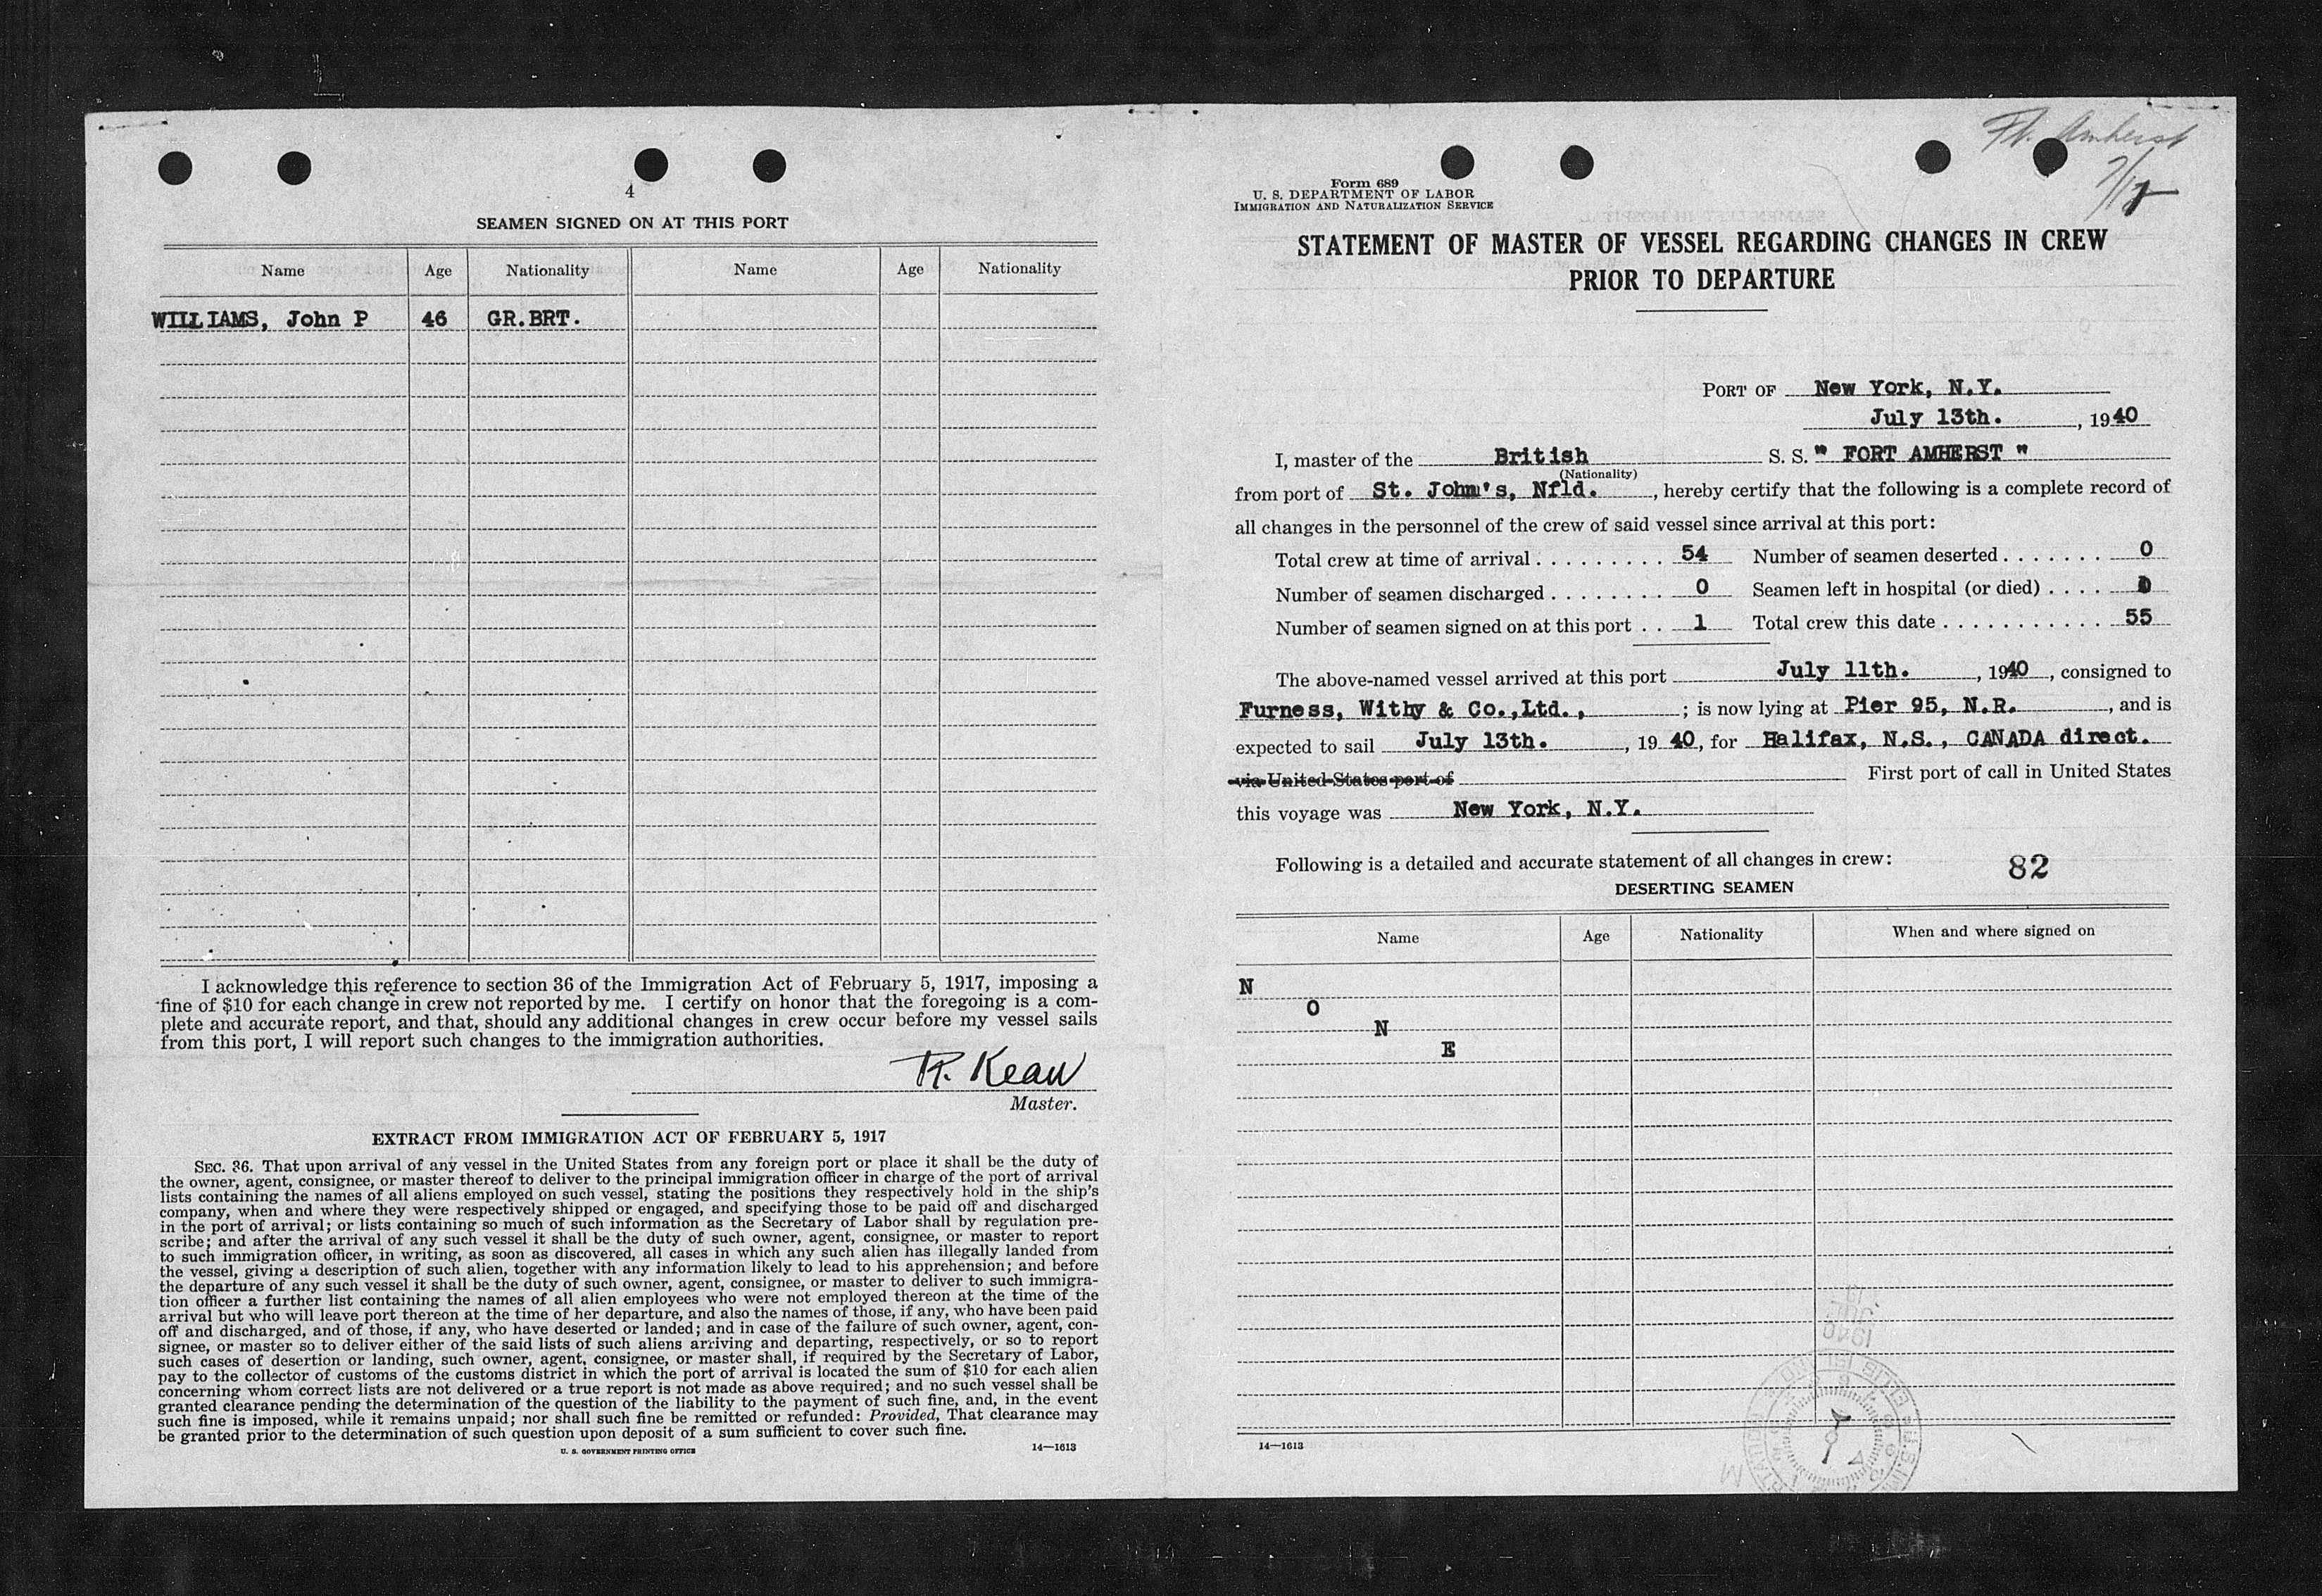 4
SEAMEN SIGNED ON AT THIS PORT
Name Age Nationality Name Age Nationality
WILLIAMS, John P 46 GR.BRT.
I acknowledge this reference to section 36 of the Immigration Act of February 5, 1917, imposing a
fine of $10 for each change in crew not reported by me. I certify on honor that the foregoing is a com-
plete and accurate report, and that, should any additional changes in crew occur before my vessel sails
from this port, I will report such changes to the immigration authorities.
R. Kean
Master.
EXTRACT FROM IMMIGRATION ACT OF FEBRUARY 5, 1917
SEC. 36. That upon arrival of any vessel in the United States from any foreign port or place it shall be the duty of
the owner, agent, consignee, or master thereof to deliver to the principal immigration officer in charge of the port of arrival
lists containing the names of all aliens employed on such vessel, stating the positions they respectively hold in the ship's
company, when and where they were respectively shipped or engaged, and specifying those to be paid off and discharged
in the port of arrival; or lists containing so much of such information as the Secretary of Labor shall by regulation pre-
scribe; and after the arrival of any such vessel it shall be the duty of such owner, agent, consignee, or master to report
to such immigration officer, in writing, as soon as discovered, all cases in which any such alien has illegally landed from
the vessel, giving a description of such alien, together with any information likely to lead to his apprehension; and before
the departure of any such vessel it shall be the duty of such owner, agent, consignee, or master to deliver to such immigra-
tion officer a further list containing the names of all alien employees who were not employed thereon at the time of the
arrival but who will leave port thereon at the time of her departure, and also the names of those, if any, who have been paid
off and discharged, and of those, if any, who have deserted or landed; and in case of the failure of such owner, agent, con-
signee, or master so to deliver either of the said lists of such aliens arriving and departing, respectively, or so to report
such cases of desertion or landing, such owner, agent, consignee, or master shall, if required by the Secretary of Labor,
pay to the collector of customs of the customs district in which the port of arrival is located the sum of $10 for each alien
concerning whom correct lists are not delivered or a true report is not made as above required; and no such vessel shall be
granted clearance pending the determination of the question of the liability to the payment of such fine, and, in the event
such fine is imposed, while it remains unpaid; nor shall such fine be remitted or refunded: Provided, That clearance may
be granted prior to the determination of such question upon deposit of a sum sufficient to cover such fine.
U. S. GOVERNMENT PRINTING OFFICE 14—1613
Ft. Amherst
Form 689
U. S. DEPARTMENT OF LABOR
IMMIGRATION AND NATURALIZATION SERVICE
STATEMENT OF MASTER OF VESSEL REGARDING CHANGES IN CREW
PRIOR TO DEPARTURE
PORT OF New York, N.Y.
July 13th. , 1940
I, master of the British S. S. " FORT AMHERST "
(Nationality)
from port of St. John's, Nfld. , hereby certify that the following is a complete record of
all changes in the personnel of the crew of said vessel since arrival at this port:
Total crew at time of arrival . . . . . . . . . 54 Number of seamen deserted . . . . . . . 0
Number of seamen discharged . . . . . . . . 0 Seamen left in hospital (or died) . . . .
Number of seamen signed on at this port . . 1 Total crew this date . . . . . . . . . . . 55
The above-named vessel arrived at this port July 11th. , 1940 , consigned to
Furness, Withy & Co.,Ltd., ; is now lying at Pier 95, N.R. , and is
expected to sail July 13th. , 19 40, for Halifax, N.S., CANADA direct.
via United States port of First port of call in United States
this voyage was New York, N.Y.
Following is a detailed and accurate statement of all changes in crew: 82
DESERTING SEAMEN
Name Age Nationality When and where signed on
N
O
N
E
14—1613